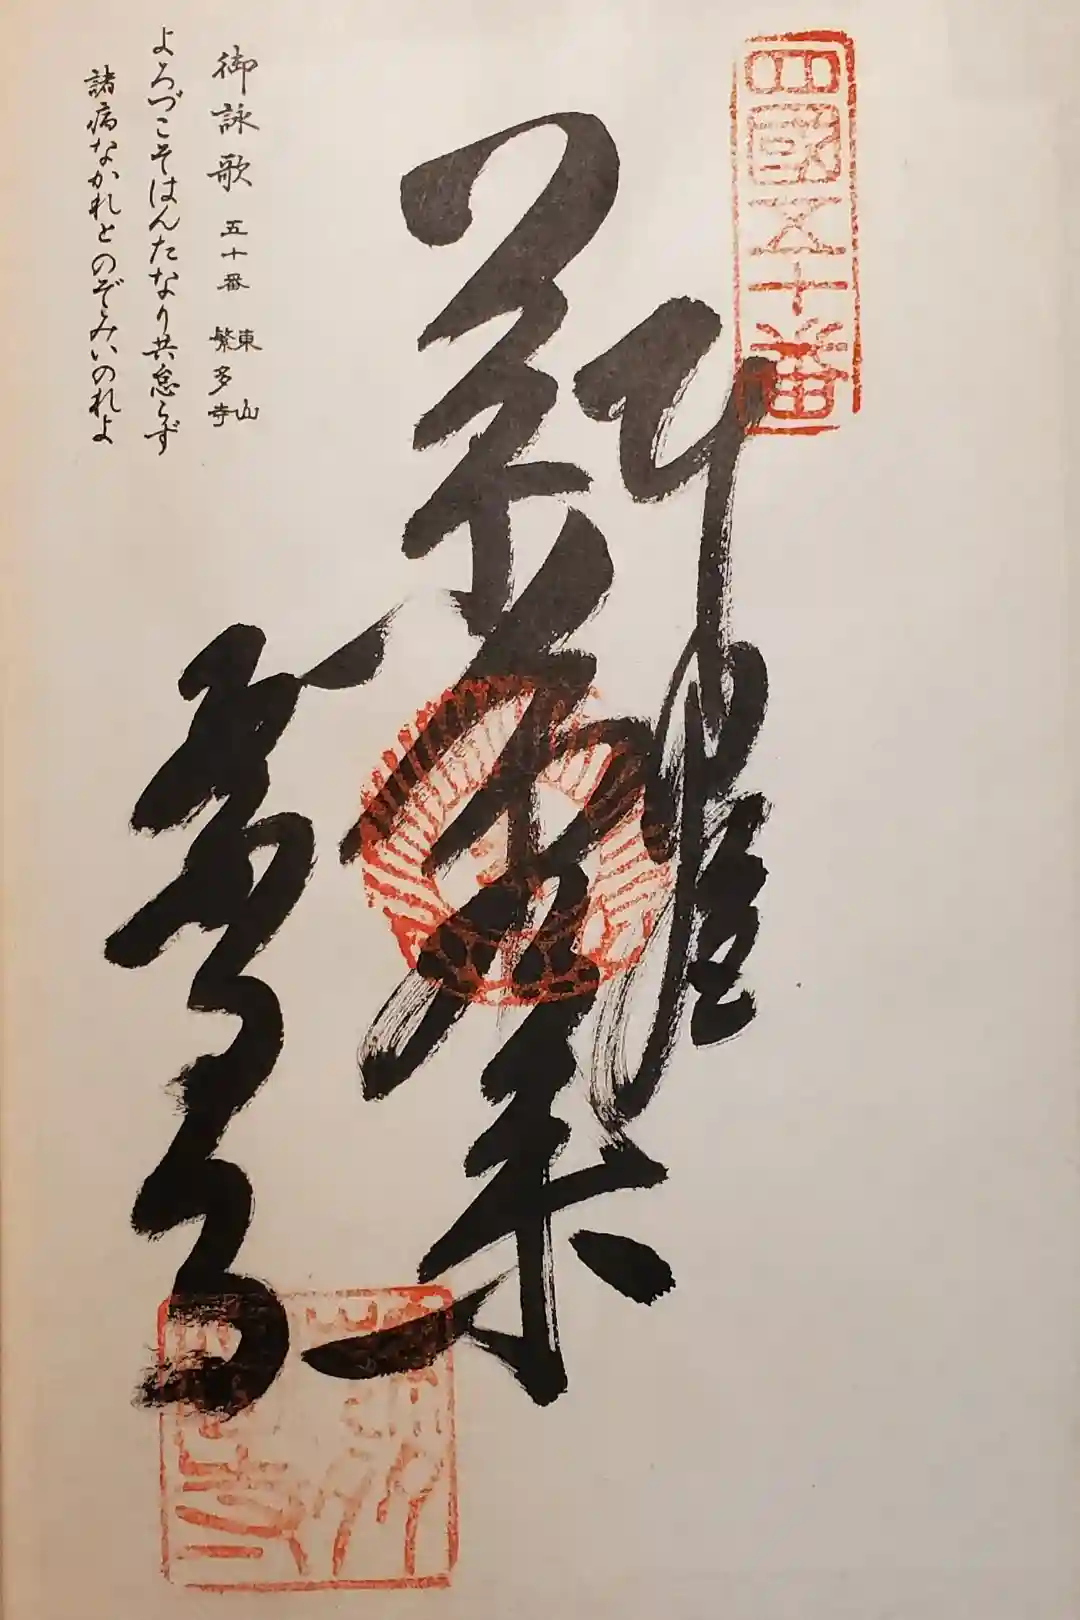 四國五十番
奉拜
薬師如来
繁多寺
御詠歌 五十番 東山 繁多寺
よろづこそはんたなり共怠らず
諸病なかれとのぞみいのれよ